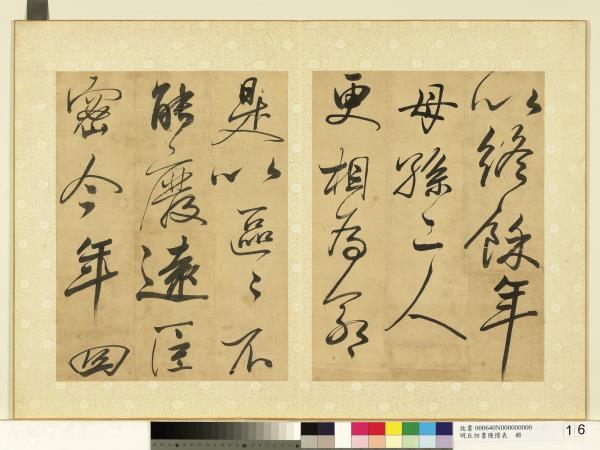 以終餘年
母孫二人
更相為命
是以區〻不
能廢遠臣
密今年四
故書 000640N000000000
明丘但書陳情表 冊
16